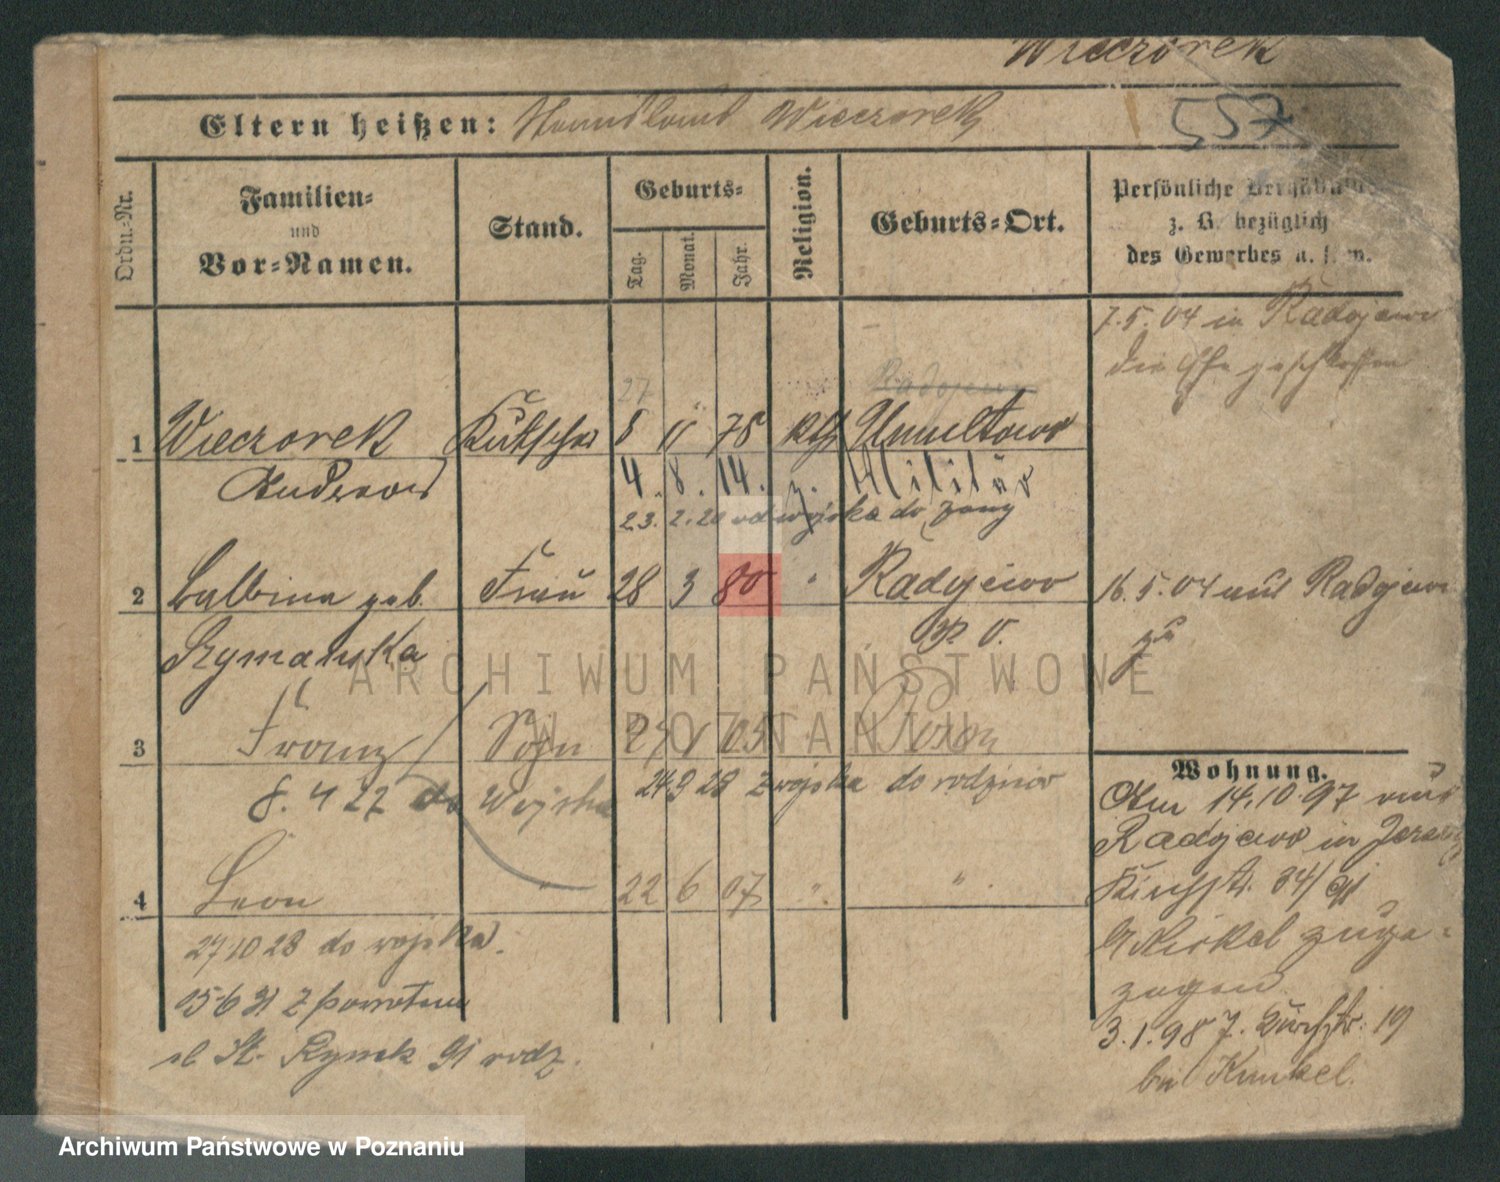 Wieczorek
557
Eltern heißen: Wieczorek
Ordn.-Nr.
Familien-
und
Vor-Namen.
Stand.
Geburts-
Tag.
Monat.
Jahr.
Religion.
Geburts-Ort.
Persönliche
z. B. bezüglich
des Gewerbes u. s. w.
7.5.04 in Radojewo
die Ehe geschlossen
27
Radojewo
1 Wieczorek Kutscher 8 11 75 kth Umultowo
Andreas
4. 8. 14. z. Militär
23. 2. 20 od wojska do żony
2 Balbina geb. Frau 28 3 80 " Radojewo
16.5.04 aus Radojewo
Szymanska
P. O.
zu
3 Franz Sohn 27 1 05 Posen
8. 4 27 do Wojska
24 9 28 z wojska do rodziców
4 Leon " 22 6 07 " "
27 10 28 do wojska.
15-6 31 z powrotem
ul St. Rynek 91 rodz.
Wohnung.
Am 14.10.97 aus
Radojewo in
Kirchstr. 34/
zuge-
zogen
3.1.98 7. 19
bei Kunkel.
ARCHIWUM PAŃSTWOWE
W POZNANIU
Archiwum Państwowe w Poznaniu